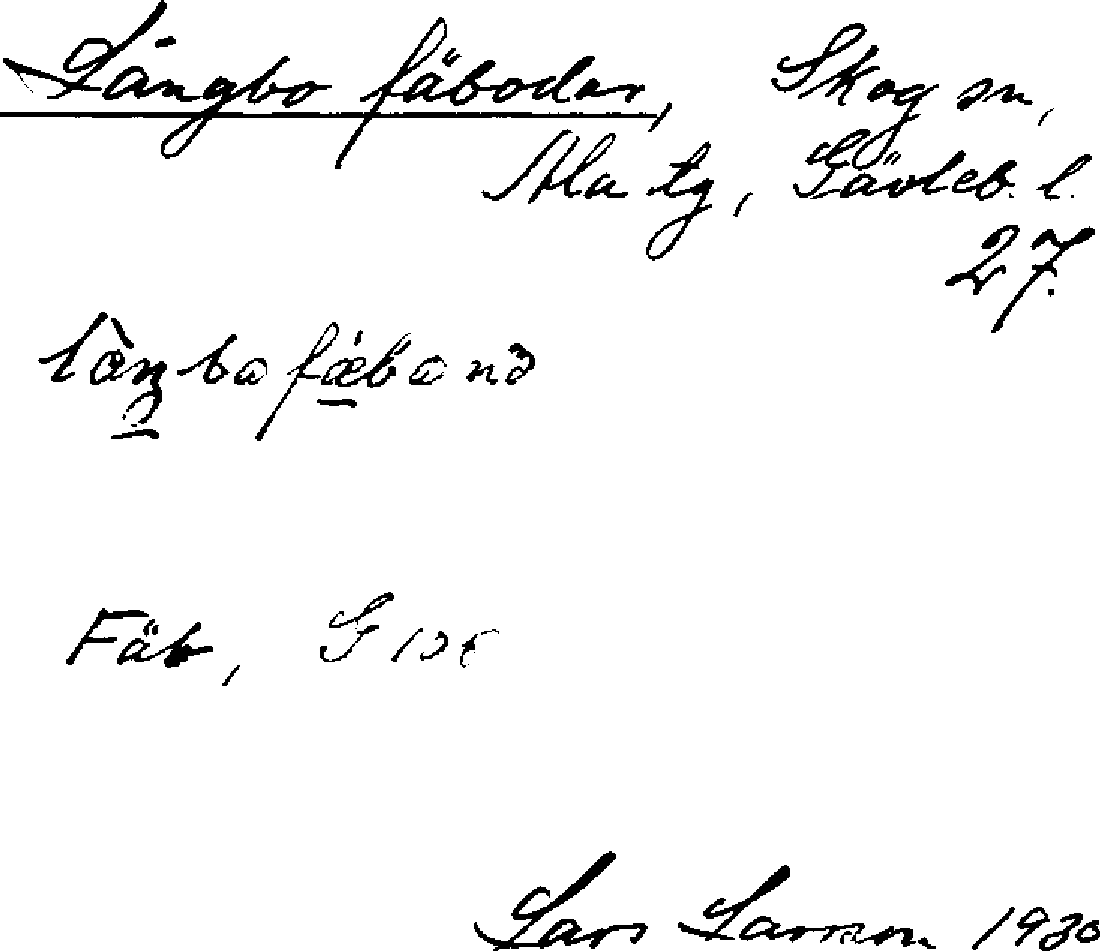 Långbo fäbodar, Skog sn,
Ala tg, Gävleb. l.
27.
Fäb, G
Lars Larsson 1930